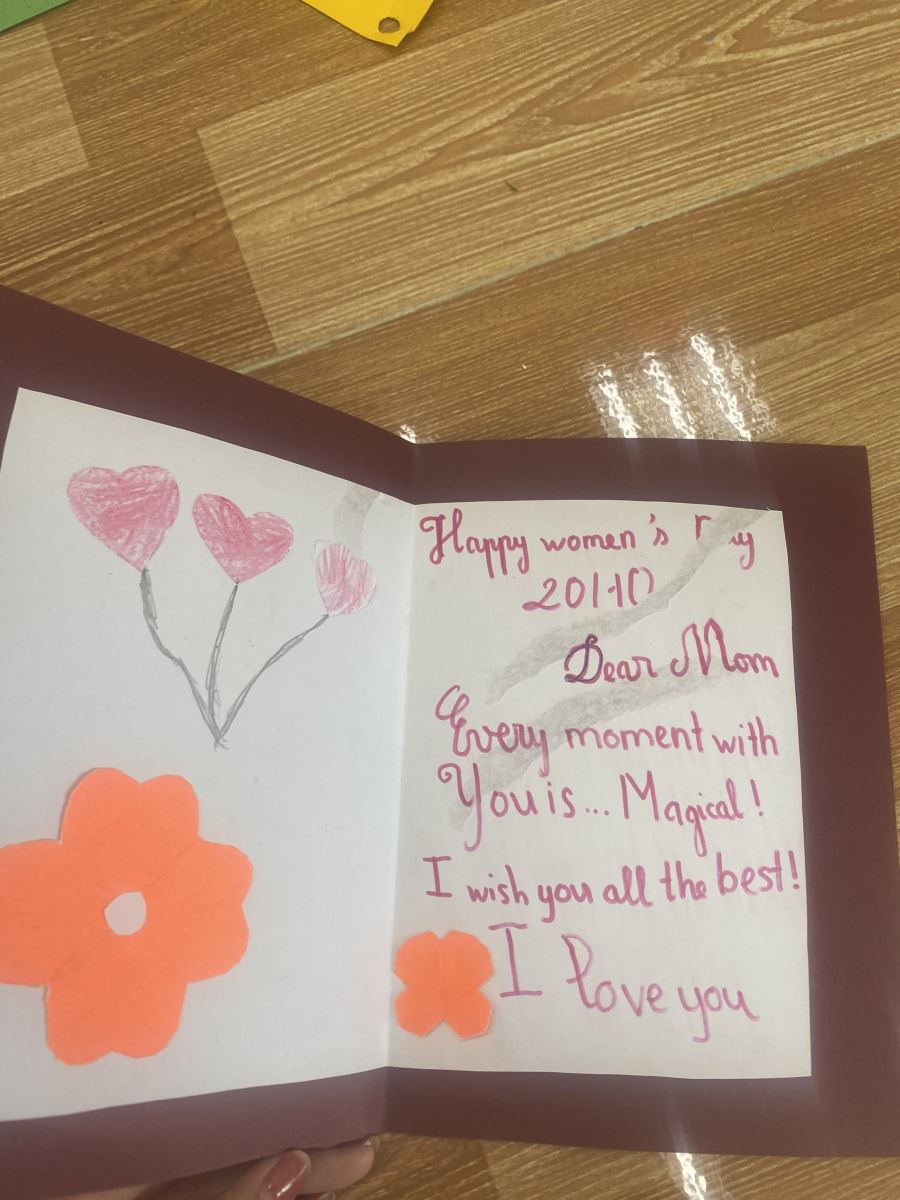 Happy women's
20/10
Dear Mom
Every moment with
You is... Magical!
I wish you all the best!
I love you